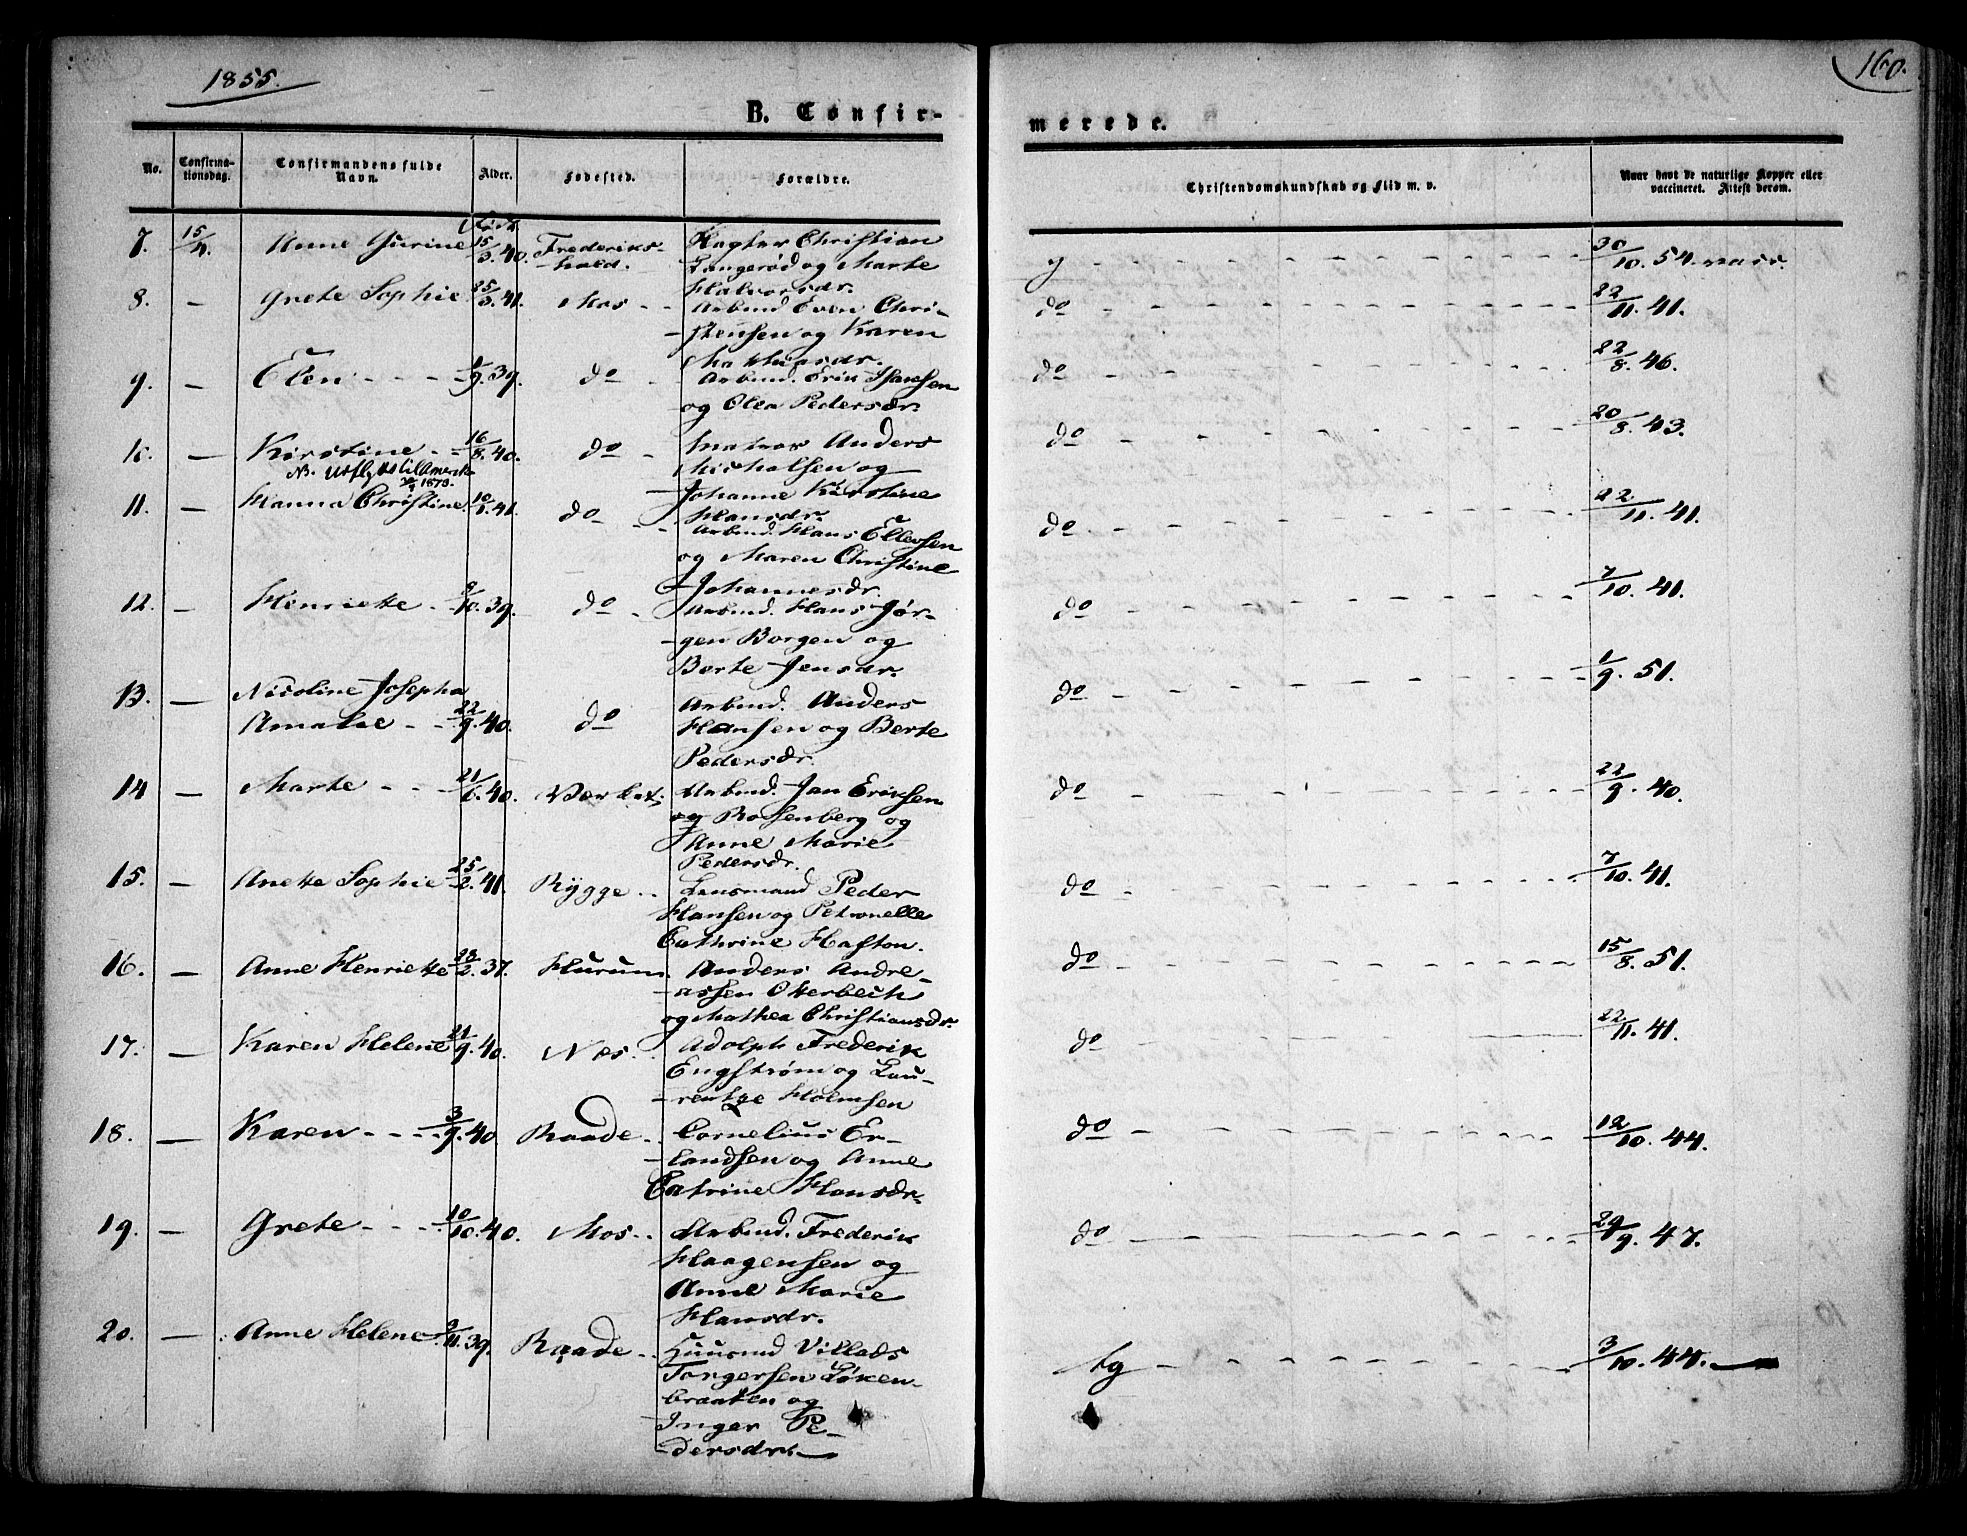 1855.
160.
B. Confir-
merede.
No.
Confirma-
tionsdag.
Confirmandens fulde
Navn.
Alder.
Fødested.
Forældre.
Christendomskundskab og Flid m. v.
Naar havt de naturlige Kopper eller
vaccineret. Attest derom.
7. 15/4. Anne Gurine 15/3. 40. Frederiks- Christian g - - - 30/10. 54.
-hald. Langerød og Marte
Halvorsdr.
8. — Grete Sophie 25/3. 41. Mos - - Arbmd Even Chri- do - - - 22/11. 41.
-stensen og Karen
Mathiasdr.
9. — Elen - - - 39. do - Arbmd. Erik Hansen do - - - 22/8. 46.
og Olea Pedersdr.
10. — Kirstine - - 16/8. 40. do - Matros Anders do - - - 20/8. 43.
NB. Udflyttet til Amerika Michalsen og
1873. Johanne Kirstine
Hansdr.
11. — Hanna Christine 41. do - - Arbmd. Hans Ellefsen do - - - 22/11. 41.
og Maren Christine
Johannesdr.
12. — Henriette - 9/10. 39. do - Arbmd. Hans Jør- do - - - 7/10. 41.
-gen Borgen og
Berte Jensdr.
13. — Nicoline Josepha
Amalie - - 22/9. 40. do Arbmd. Anders do - - - 1/9. 51.
Hansen og Berte
Pedersdr.
14 — Marte - - - 21/6. 40. Værket. Arbmd. Jan Eriksen do - - - 22/9. 40.
Rosenberg og
Anne Marie
Pedersdr.
15. — Anette Sophie 25/2. 41. Rygge - - Lensmand Peder do - - - 7/10. 41.
Hansen og Petronelle
Cathrine Hafton.
16. — Anne Henriette 23/2. 37. Hurum - Anders Andre- do - - - 15/8. 51.
-assen Otterbech
og Mathea Christiansdr.
17. — Karen Helene 21/9. 40. Næs - - Adolph Frederik do - - - 22/11. 41.
Engstrøm og Lau-
-rentze Holmsen
18. — Karen - - - 3/9. 40 Raade - - Cornelius Er- do - - - 12/10. 44.
-landsen og Anne
Catrine Hansdr.
19. — Grete - - - 10/10. 40. Mos - - Arbmd. Frederik do - - - 29/9. 47.
Haagensen og
Anne Marie
Hansdr.
20. — Anne Helene 9/11. 39. Raade - - Huusmd Villads tg - - - 3/10. 44. —
Torgersen Løken-
braaten og
Inger Pe-
-dersdr. —